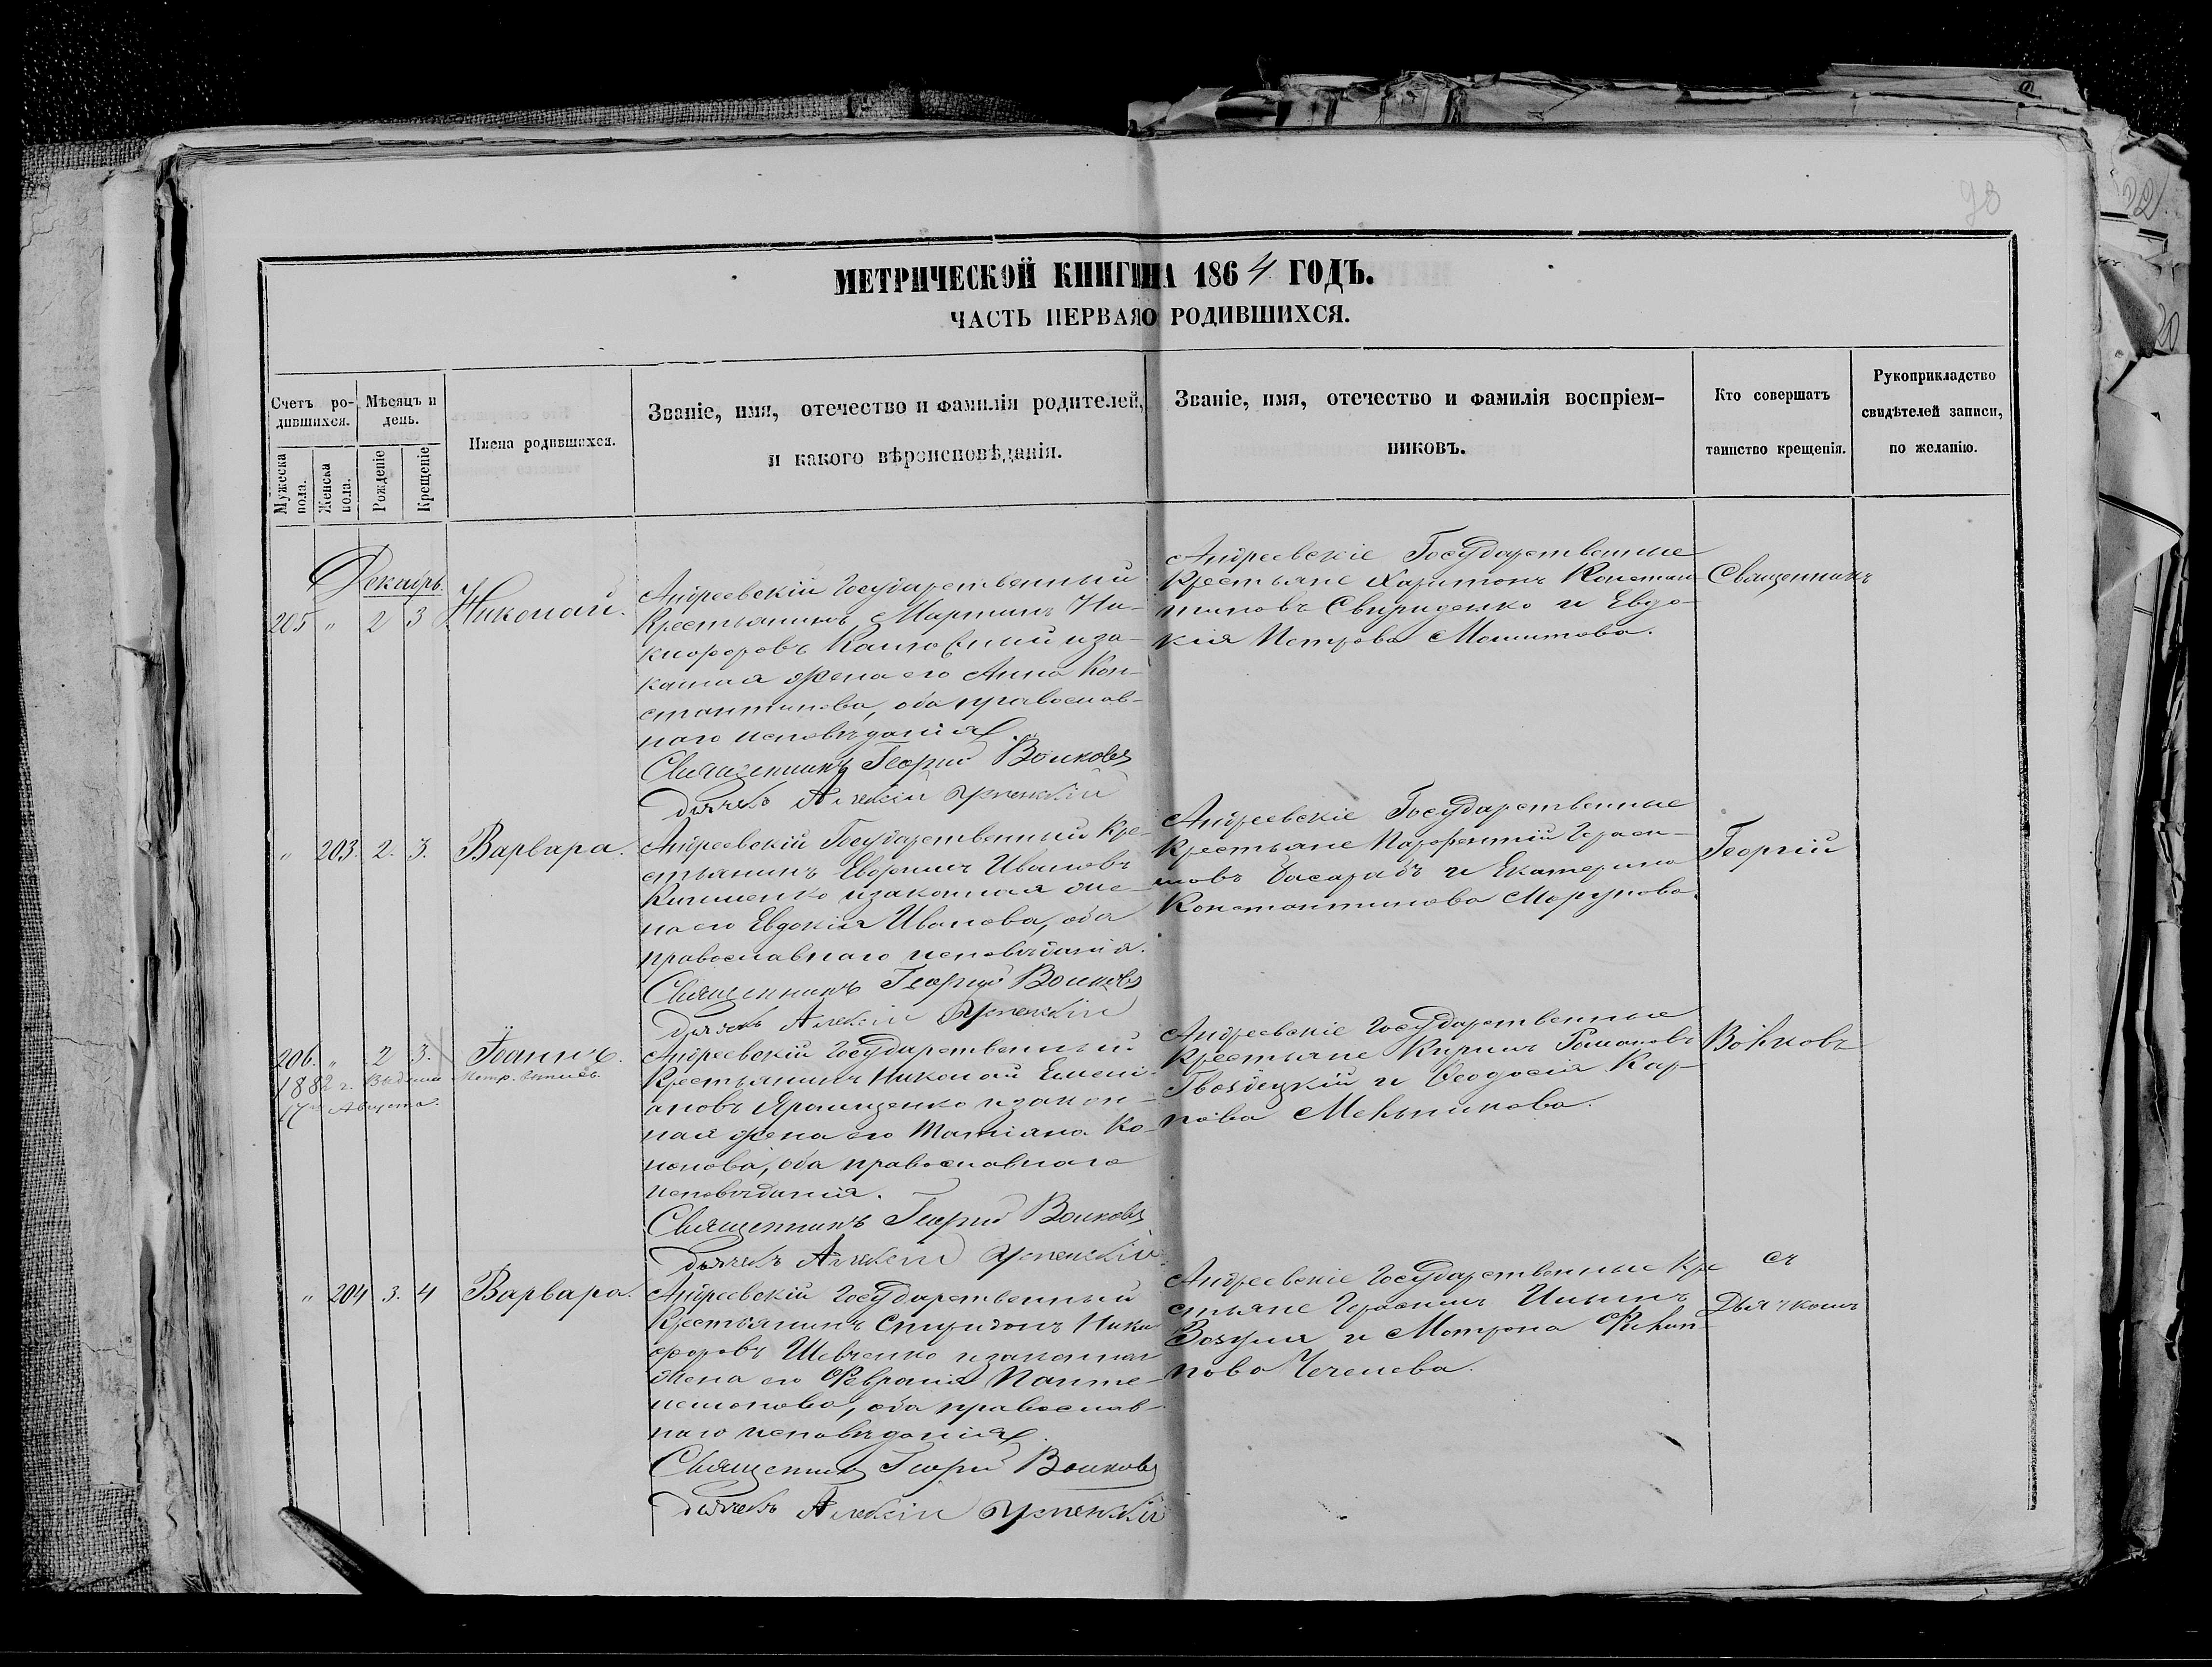 МЕТРИЧЕСКОЙ КНИГИ НА 1864 ГОДЪ.
ЧАСТЬ ПЕРВАЯ О РОДИВШИХСЯ.
Счетъ ро-
дившихся.
Мужеска
пола.
Женска
пола.
Мѣсяцъ и
день.
Рожденіе
Крещеніе
Имена родившихся.
Званіе, имя, отечество и фамилія родителей,
и какого вѣроисповѣданія.
Званіе, имя, отечество и фамилія воспріем-
никовъ.
Кто совершатъ
таинство крещенія.
Рукоприкладство
свидѣтелей записи,
по желанію.
Декабрь
205 " 2 3 Николай.
Андреевскій Государственный
Крестьянинъ Мартинъ Ни-
кифоровъ и за-
конная жена его Анна Кон-
стантинова, оба православ-
наго исповѣданія
Священникъ Георгій Волковъ
Дьячекъ Алексій Успенскій
Андреевскіе Государственные
Крестьяне Харитонъ Констан-
тиновъ Свириденко и Евдо-
кія Петрова
Священникъ
" 203. 2. 3. Варвара.
Андреевскій Государственный Кре-
стьянинъ Евфимъ Ивановъ
и законная же-
на его Евдокія Иванова, оба
православнаго исповѣданія.
Священникъ Георгій Волковъ
Дьячекъ Алексій Успенскій
Андреевскіе Государственные
Крестьяне Парфентій Гераси-
мовъ Басарабъ и Екатерина
Константинова Моргунова.
Георгій
206. " 2 3. Іоаннъ.
1882 г. Выдана Метр. выпись.
17го Августа.
Андреевскій Государственный
Крестьянинъ Николай Емелі-
ановъ и закон-
ная жена его Татіана Ко-
нонова, оба православнаго
исповѣданія.
Священникъ Георгій Волковъ
Дьячекъ Алексій Успенскій
Андреевскіе Государственные
Крестьяне Кирилъ Романовъ
Гвоздецкій и Ѳеодосія Кар-
пова Мельникова.
Волковъ
" 204 3. 4 Варвара.
Андреевскій Государственный
Крестьянинъ Спиридонъ Ники
форовъ Шевченко и законная
жена его Февронія Панте-
леимонова, оба православ-
наго исповѣданія.
Священникъ Георгій Волковъ
Дьячекъ Алексій Успенскій
Андреевскіе Государственные Кре
стьяне Герасимъ Ильинъ
и Мотрона Филип-
пова
съ
Дьячкомъ